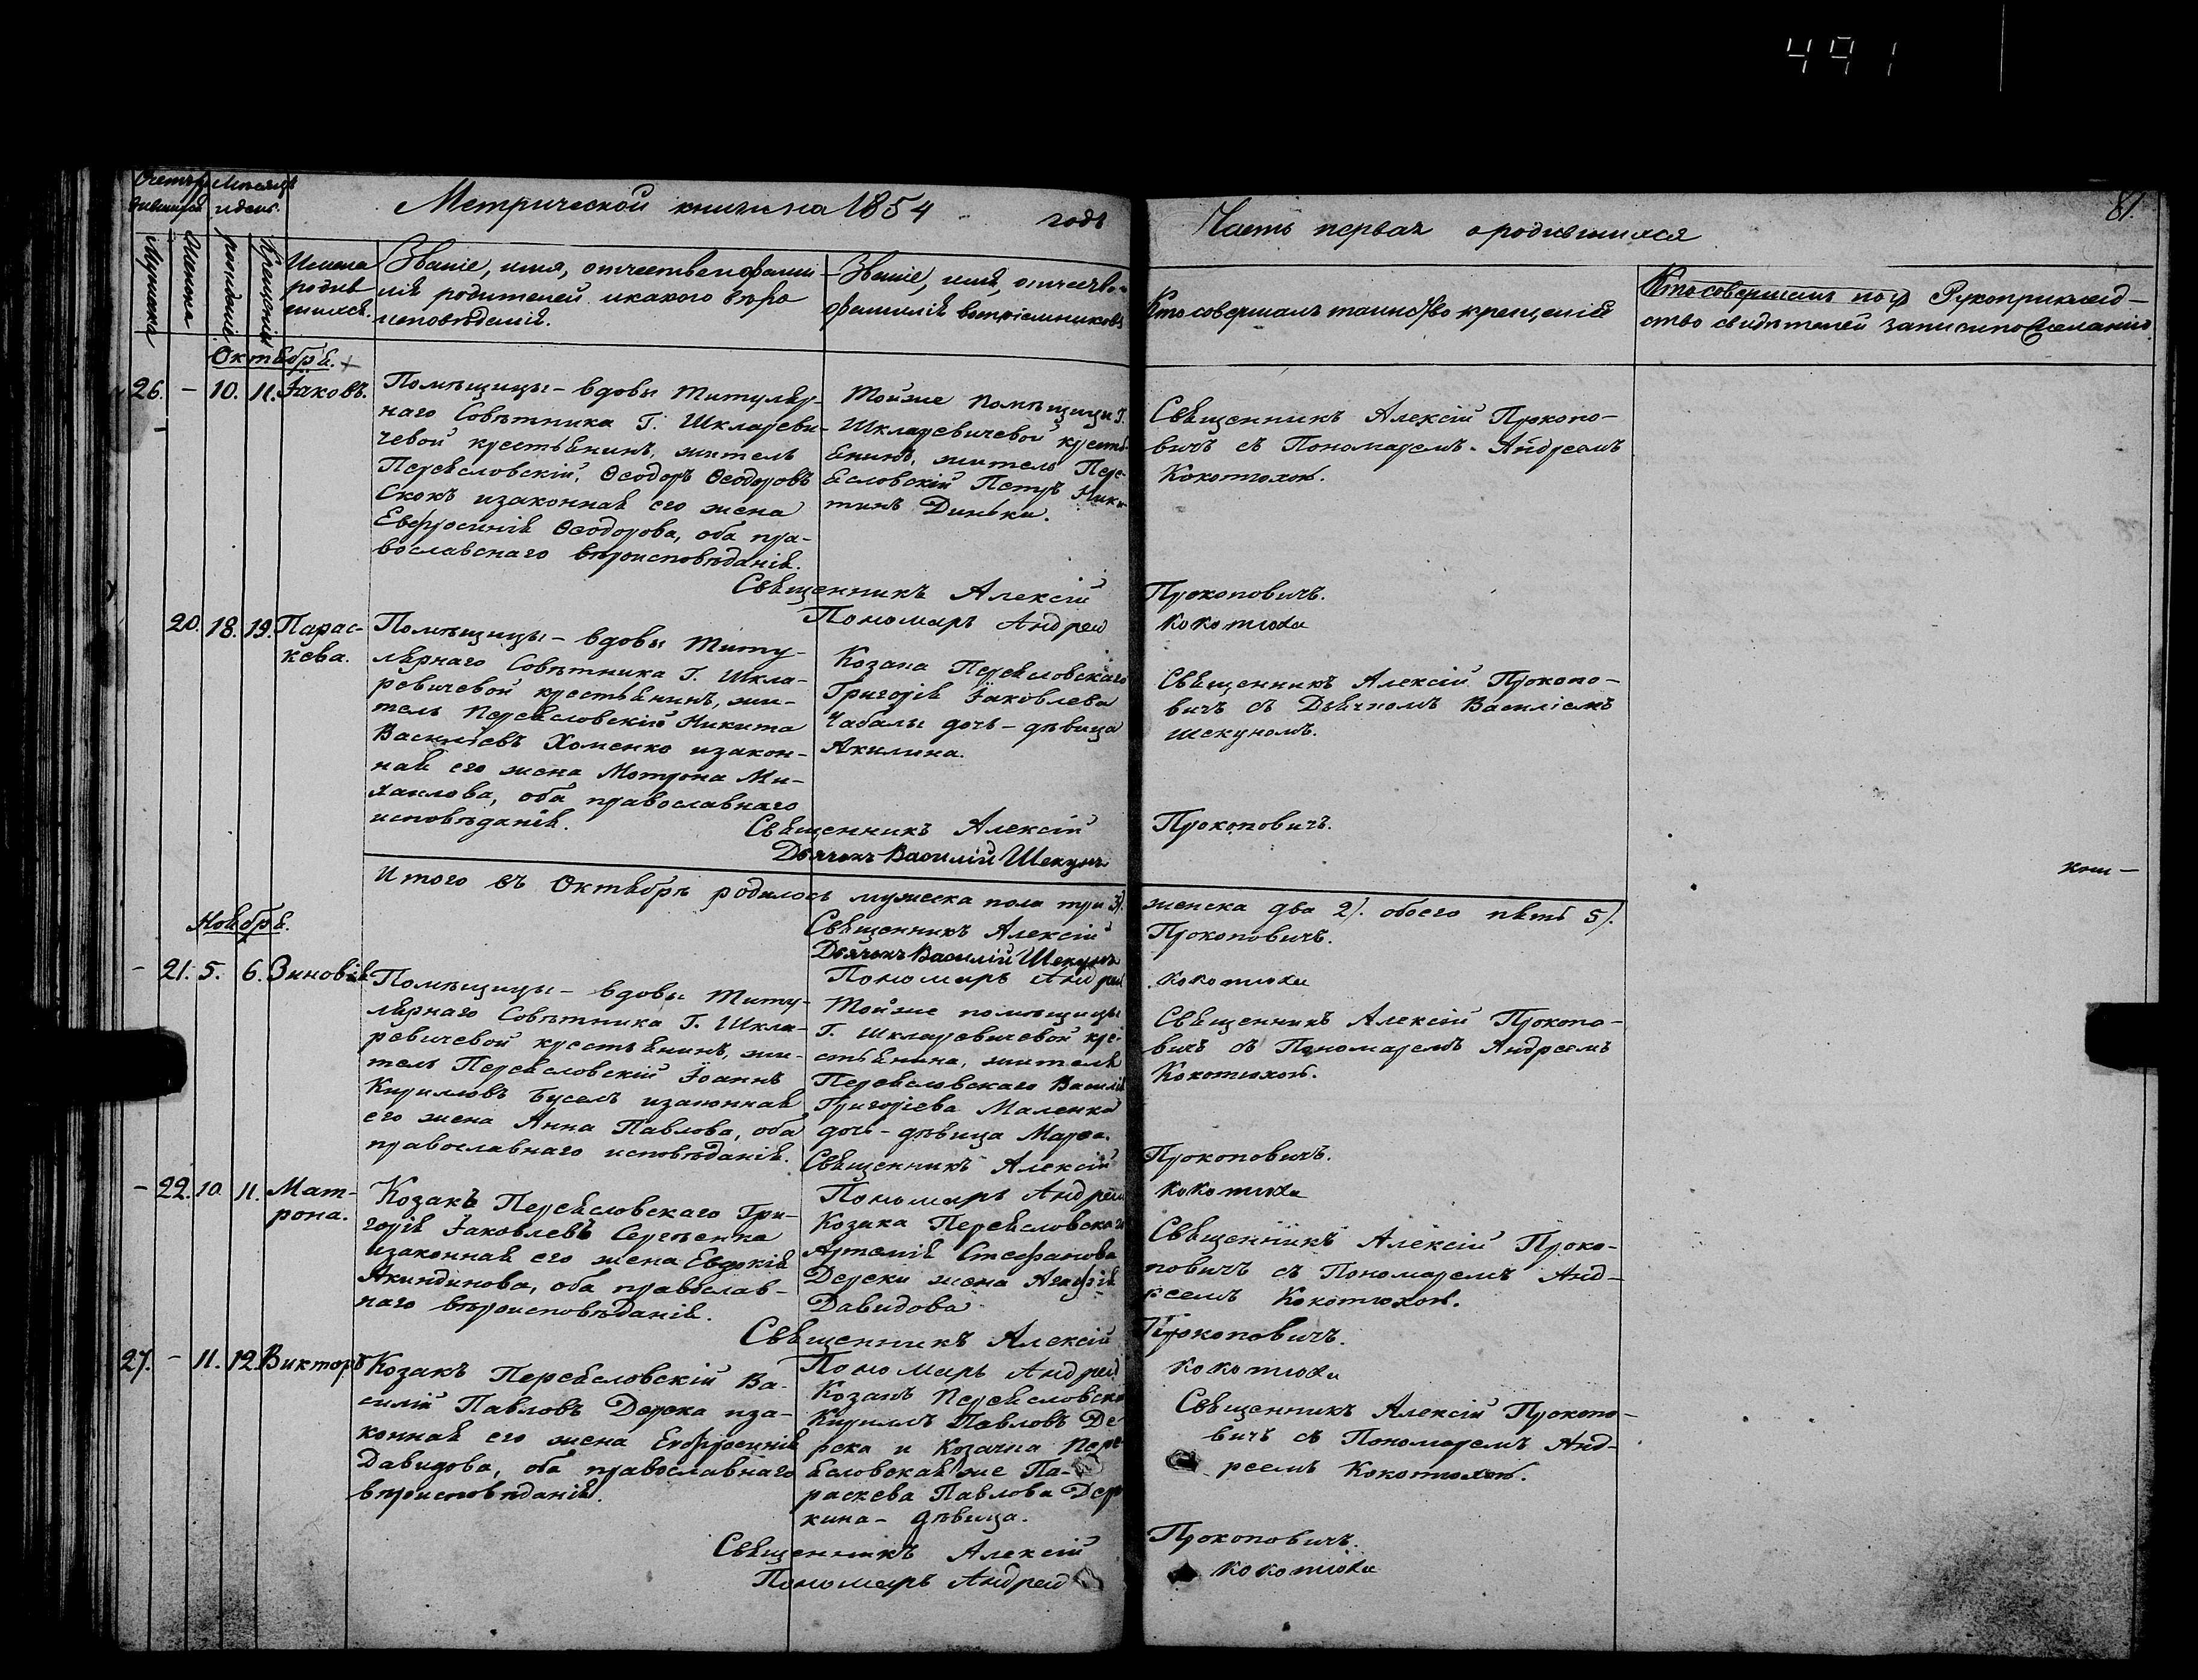 491
81.
Метрической книги на 1854 годъ
Часть первая о родившихся
Мѣсяцъ
и день.
Мужеска
Женска
рожденія
Крещенія
Имена
родив
шихся.
Званіе, имя, отчество и фами
лія родителей и какого вѣро
исповѣданія.
Званіе, имя, отчество
фамилія воспріемниковъ
Кто совершалъ таинство крещенія
Рукоприклад-
ство свидѣтелей записи по желанію
Октября.
26. - 10. 11. Іаковъ.
Помѣщицы - вдовы Титуляр-
наго Совѣтника Г. Шкляреви-
чевой крестьянинъ, житель
Переясловскій, Ѳеодоръ Ѳеодоровъ
Скокъ и законная его жена
Евфросинія Ѳеодорова, оба пра-
вославнаго вѣроисповѣданія.
Тойже помѣщицы Г.
Шкляревичевой кресть
янинъ, житель Пере-
ясловскій Петръ Ники
тинъ Динька.
Священникъ Алексій Прокопо-
вичъ съ Пономаремъ Андреемъ
Кокотюхою.
Священникъ Алексій Прокоповичъ.
Пономарь Андрей Кокотюха
20. 18. 19. Парас-
кева.
Помѣщицы - вдовы Титу-
лярнаго Совѣтника Г. Шкля-
ревичевой крестьянинъ, жи-
тель Переясловскій Никита
Васильевъ Хоменко и закон-
ная его жена Мотрона Ми-
хаилова, оба православнаго
исповѣданія.
Козака Переясловскаго
Григорія Іаковлева
Чабалы дочь - дѣвица
Акилина.
Священникъ Алексій Прокопо-
вичъ съ Дьячкомъ Василіемъ
Шекуномъ.
Священникъ Алексій Прокоповичъ.
Дьячокъ Василій Шекунъ
Итого въ Октябрѣ родилось мужеска пола три 3/. женска два 2/. обоего пять 5/.
Священникъ Алексій Прокоповичъ.
Дьячокъ Василій Шекунъ
Пономарь Андрей Кокотюха
Ноября.
- 21. 5. 6. Зиновія
Помѣщицы - вдовы Титу-
лярнаго Совѣтника Г. Шкля-
ревичевой крестьянинъ, жи-
тель Переясловскій Іоаннъ
Кириловъ Бусель и законная
его жена Анна Павлова, оба
православнаго исповѣданія.
Тойже помѣщицы
Г. Шкляревичевой кре-
стьянина, жителя
Переясловскаго Василія
Григоріева Маленка
дочь - дѣвица Марѳа.
Священникъ Алексій Прокопо-
вичъ съ Пономаремъ Андреемъ
Кокотюхою.
Священникъ Алексій Прокоповичъ.
Пономарь Андрей Кокотюха
- 22. 10. 11. Мат-
рона.
Козакъ Переясловскаго Гри-
горія Іаковлевъ Сергѣенка
и законная его жена Евдокія
Акиндинова, оба православ-
наго вѣроисповѣданія.
Козака Переясловскаго
Артемія Стефанова
Дереки жена Агафія
Давидова
Священникъ Алексій Проко-
повичъ съ Пономаремъ Анд-
реемъ Кокотюхою.
Священникъ Алексій Прокоповичъ.
Пономарь Андрей Кокотюха
27. - 11. 12. Викторъ
Козакъ Переясловскій Ва-
силій Павловъ Дерека и за-
конная его жена Евфросинія
Давидова, оба православнаго
вѣроисповѣданія.
Козакъ Переясловскій
Кириллъ Павловъ Де
река и Козачка Пере
ясловская же Па-
раскева Павлова Дере
кина - дѣвица.
Священникъ Алексій Прокопо-
вичъ съ Пономаремъ Анд-
реемъ Кокотюхою.
Священникъ Алексій Прокоповичъ.
Пономарь Андрей Кокотюха